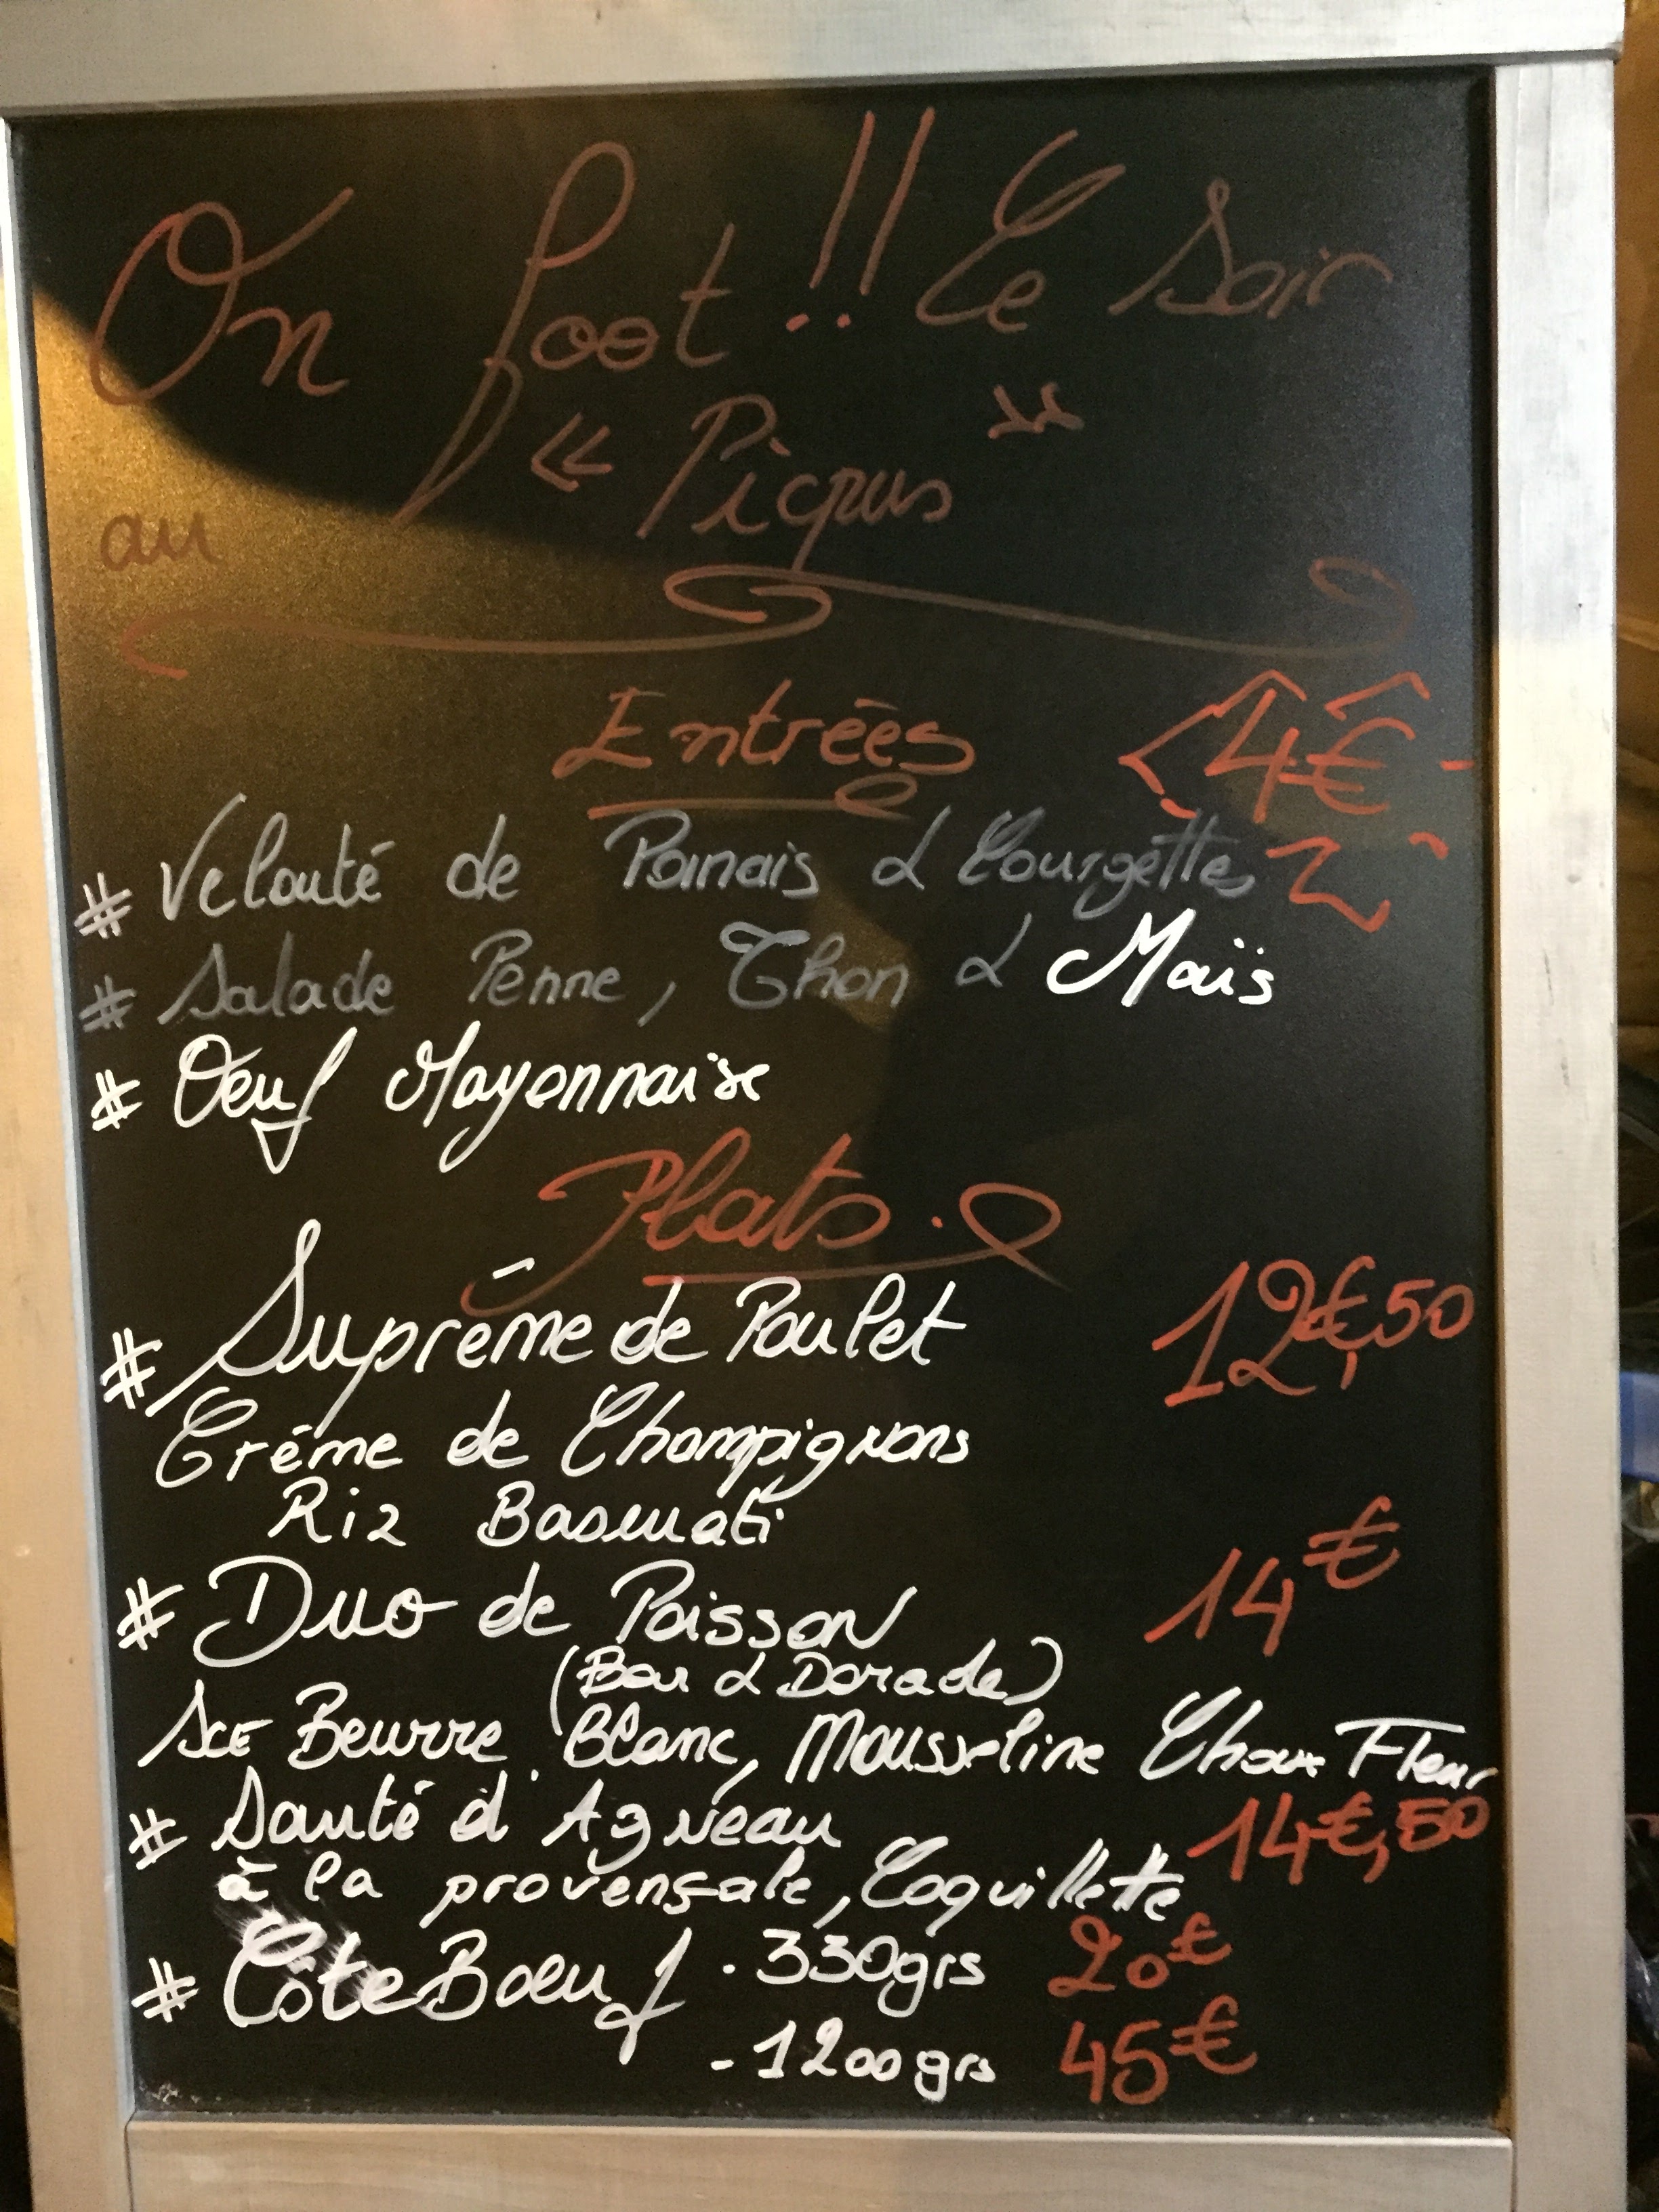 On foot !! Ce Soir
au « Picpus »
Entrées 4€
# Velouté de Panais & Courgettes
# Salade Penne, Thon & Maïs
# Oeuf Mayonnaise
Plats.
# Suprême de Poulet 12€,50
Crème de Champignons
Riz Basmati
# Duo de Poisson 14€
(Bar & Dorade)
Sce Beurre Blanc, Mousseline Choux Fleur
# Sauté d'Agneau 14€,50
à la provençale, Coquillette
# Côte Boeuf . 330grs 20€
- 1200grs 45€